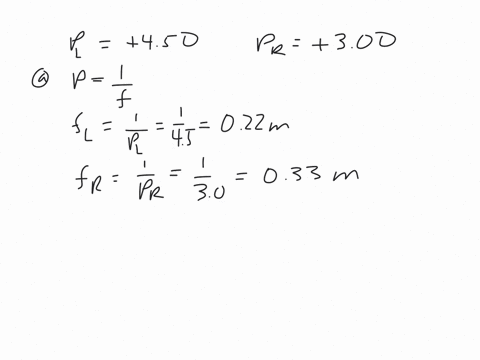 P_L = +4.50 P_R = +3.00
ⓐ P = 1/f
f_L = 1/P_L = 1/4.5 = 0.22 m
f_R = 1/P_R = 1/3.0 = 0.33 m